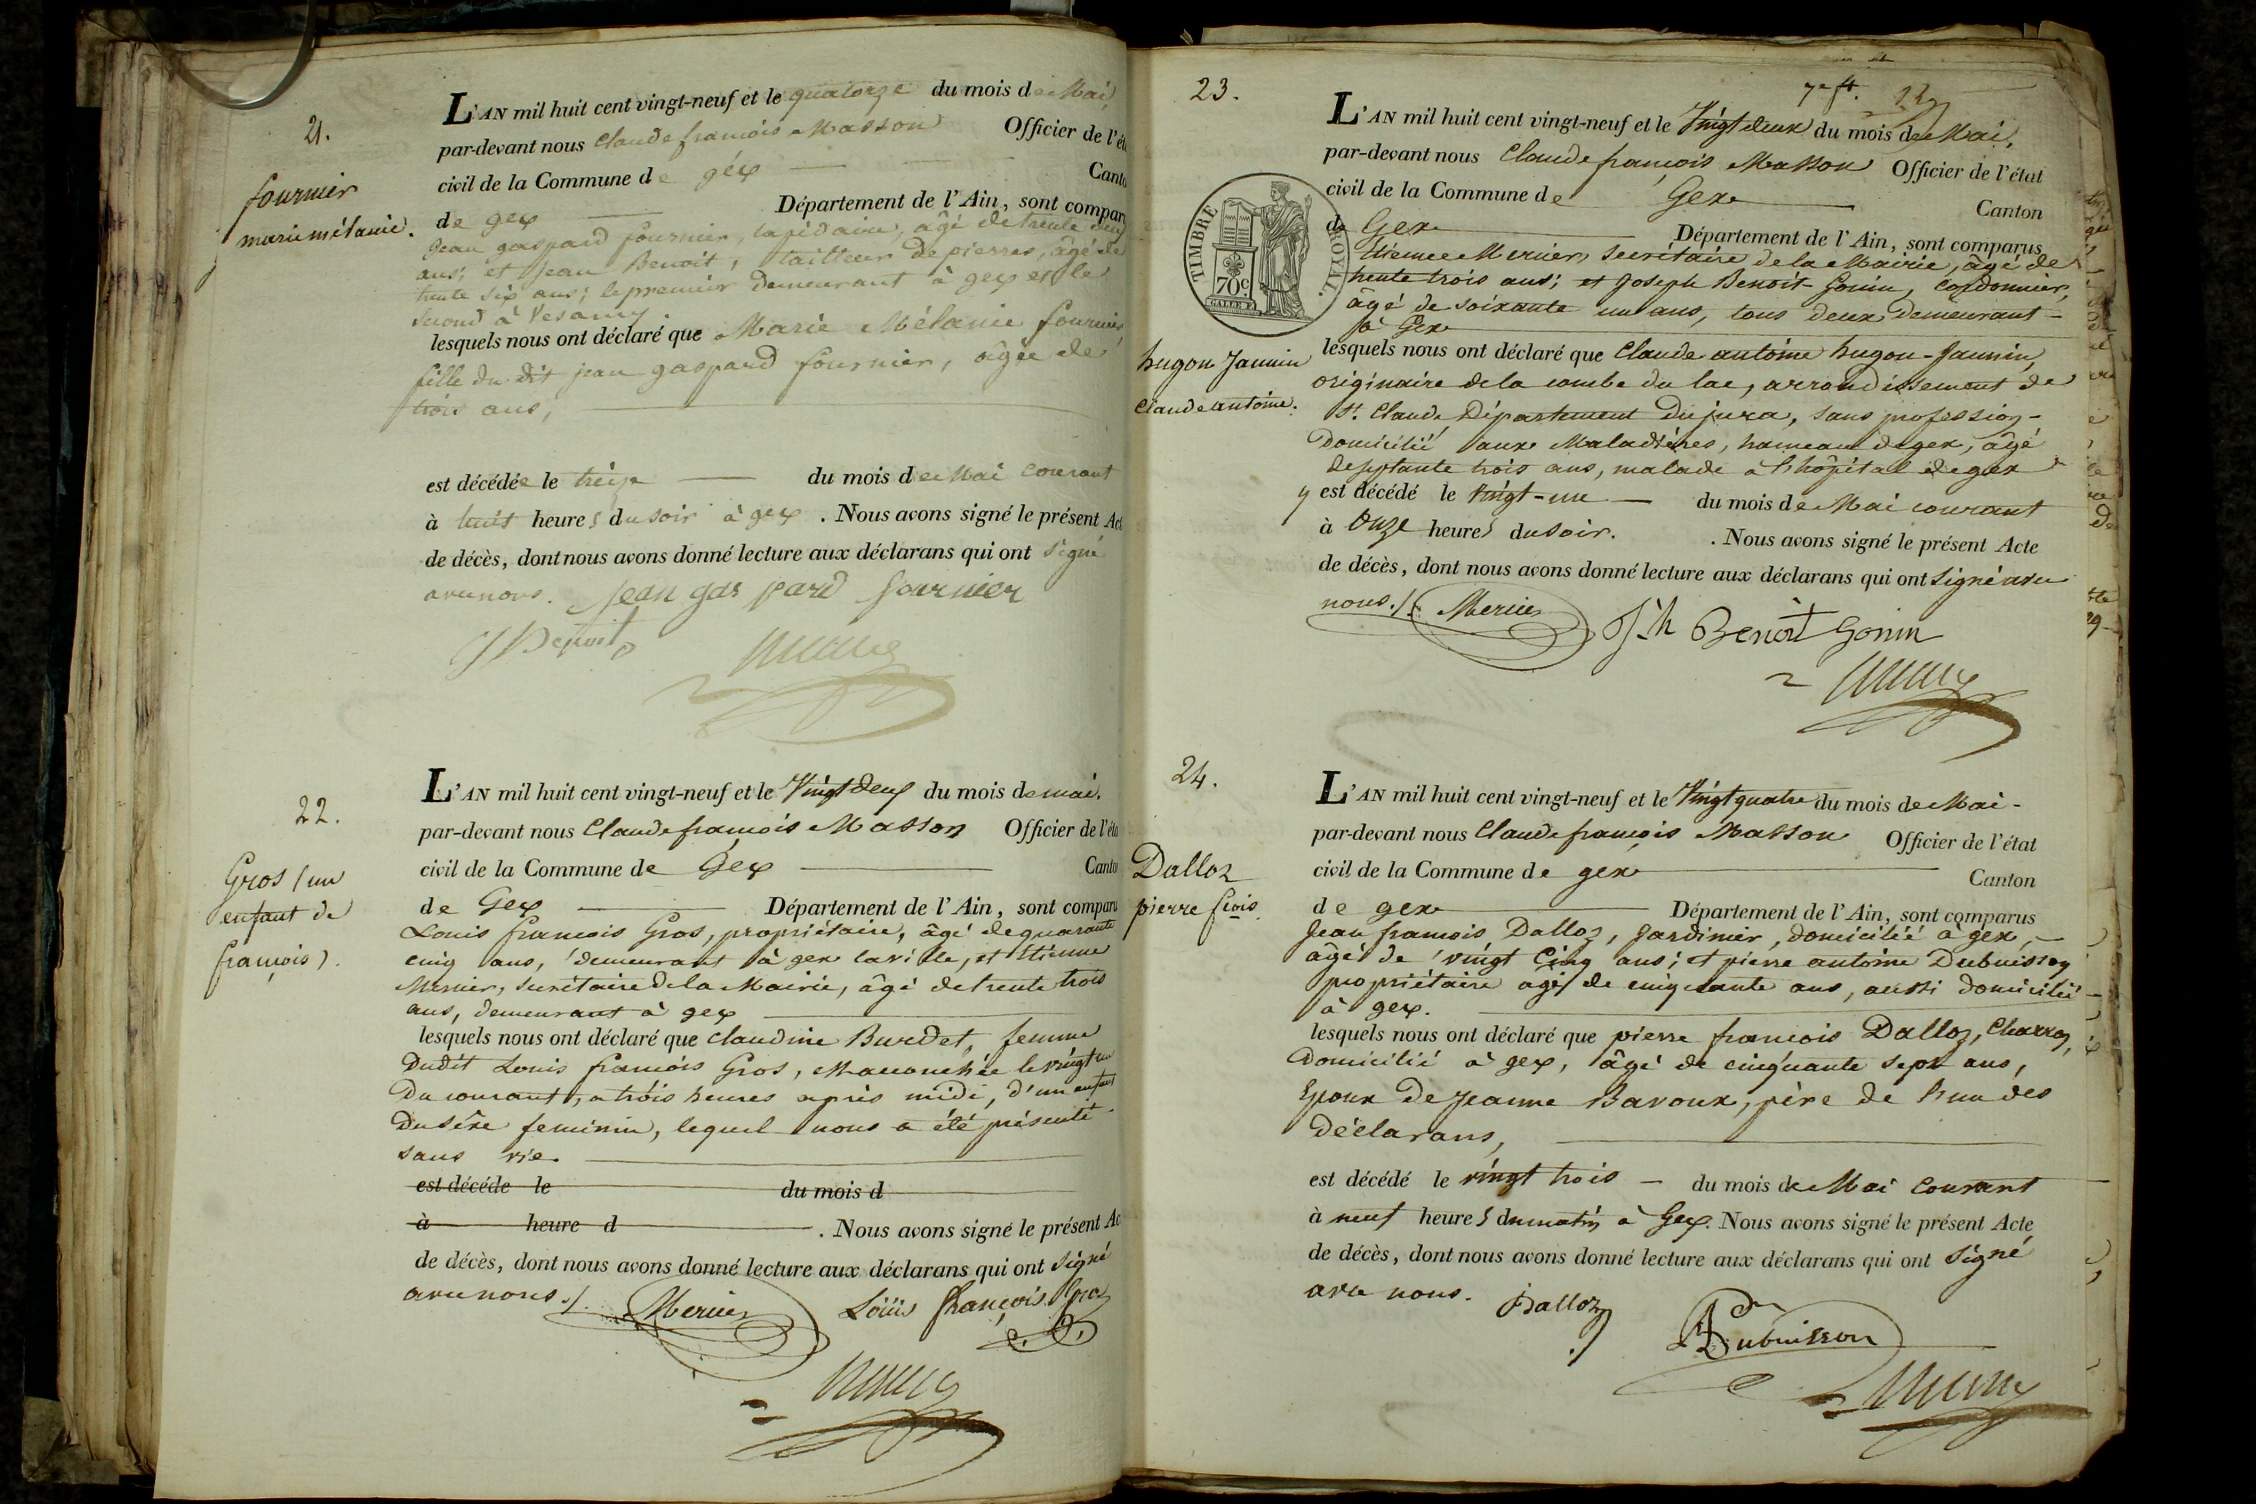 21.
fournier
marie mélanie.
L'AN mil huit cent vingt-neuf et le quatorze du mois de Mai,
par-devant nous Claude françois Masson Officier de l'ét
civil de la Commune de géx Canto
de gex Département de l'Ain, sont compar
Jean gaspard fournier, lapidaire, âgé de trente deux
ans; et jean Benoit, tailleur de pierres, âgé de
trente six ans; le premier demeurant à gex et le
second à Vesancy
lesquels nous ont déclaré que Marie Mélanie fournier
fille du dit jean gaspard fournier, âgée de
trois ans,
est décédée le treize du mois de Mai courant
à huit heures du soir à gex . Nous avons signé le présent Act
de décès, dont nous avons donné lecture aux déclarans qui ont signé
avec nous. Jean gas pard fournier
J Benoit
22.
Gros (un
enfant de
françois).
L'AN mil huit cent vingt-neuf et le Vingt deux du mois de mai.
par-devant nous Claude françois Masson Officier de l'éta
civil de la Commune de Gex Canton
de Gex Département de l'Ain, sont comparu
Louis françois Gros, propriétaire, âgé de quarante
cinq ans, demeurant à gex la ville, et Etienne
Mercier, secrétaire de la Mairie, âgé de trente trois
ans, demeurant à gex
lesquels nous ont déclaré que Claudine Burdet, femme
dudit Louis françois Gros, est accouchée le vingt un
du courant, à trois heures après midi, d'un enfant
du sexe feminin, lequel nous a été présenté
sans vie.
est décéde le du mois d
à heure d . Nous avons signé le présent Ac
de décès, dont nous avons donné lecture aux déclarans qui ont signé
avec nous ./. Mercier Loüis François Gros
23.
7e ft.
TIMBRE ROYAL.
70c
hugon Jannin
Claude antoine.
L'AN mil huit cent vingt-neuf et le Vingt deux du mois de Mai,
par-devant nous Claude françois Masson Officier de l'état
civil de la Commune de Gex Canton
de Gex Département de l'Ain, sont comparus
Etienne Mercier, secrétaire de la Mairie, âgé de
trente trois ans; et Joseph Benoit-Gonin, cordonnier,
âgé de soixante un ans, tous deux demeurant
à Gex
lesquels nous ont déclaré que Claude antoine hugon-Jannin,
originaire de la combe du lac, arrondissement de
St. Claude, Département du jura, sans profession
domicilié aux Maladières, hameau de gex, âgé
de septante trois ans, malade à l'hôpital de gex
y est décédé le vingt-un du mois de Mai courant
à Onze heures du soir. . Nous avons signé le présent Acte
de décès, dont nous avons donné lecture aux déclarans qui ont signé avec
nous./. Mercier Jh Benoit Gonin
24.
Dalloz
pierre fcois.
L'AN mil huit cent vingt-neuf et le Vingt quatre du mois de Mai
par-devant nous Claude françois Masson Officier de l'état
civil de la Commune de gex Canton
de gex Département de l'Ain, sont comparus
Jean françois Dalloz, Jardinier, domicilié à gex,
âgé de vingt Cinq ans; et pierre antoine Dubuisson
propriétaire agé de cinquante ans, aussi domicilié
à gex.
lesquels nous ont déclaré que pierre françois Dalloz, Charron,
domicilié à gex, âgé de cinquante sept ans,
Epoux de Jeanne Bavoux, père de l'un des
déclarans,
est décédé le vingt trois du mois de Mai Courant
à neuf heures du matin à Gex. Nous avons signé le présent Acte
de décès, dont nous avons donné lecture aux déclarans qui ont signé
avec nous. Dalloz
Dubuisson